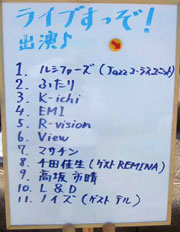 ライブすっぞ!
出演♪
1. ルシファーズ(Jazzコーラスユニット)
2. ふたり
3. K-ichi
4. EMI
5. R-vision
6. View
7. マサチン
8. 千田佳生(ゲスト REMINA)
9. 高坂市晴
10. L & D
11. ノイズ(ゲスト テル)